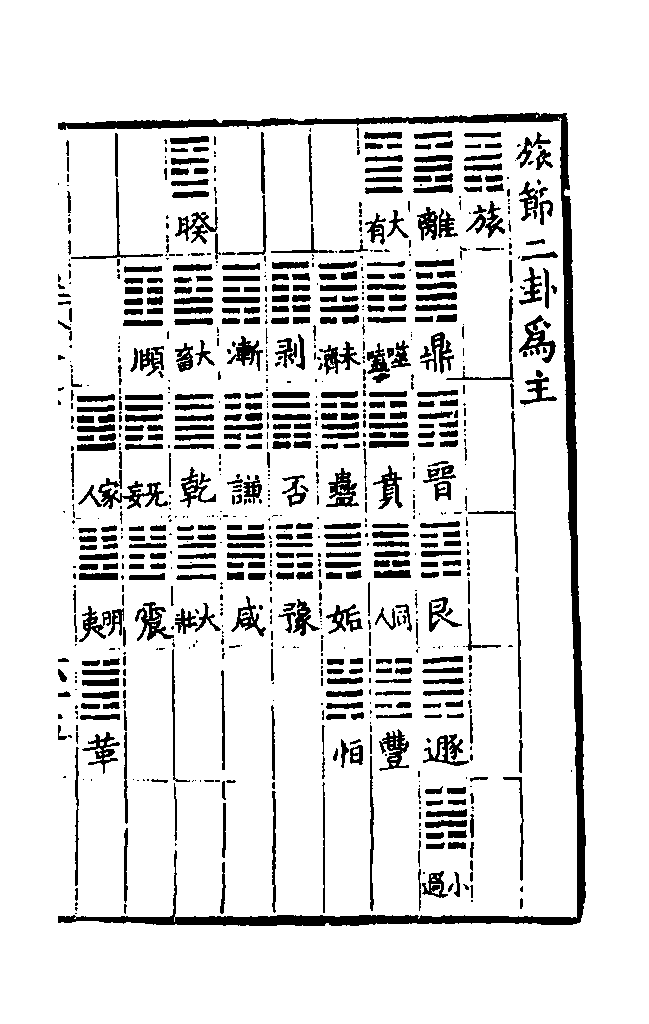 旅節二卦爲主
旅
離 鼎 晉 艮 遯 小過
大有 噬嗑 賁 同人 豐
未濟 蠱 姤 恒
剥 否 豫
漸 謙 咸
睽 大畜 乾 大壯
頤 无妄 震
家人 明夷 革